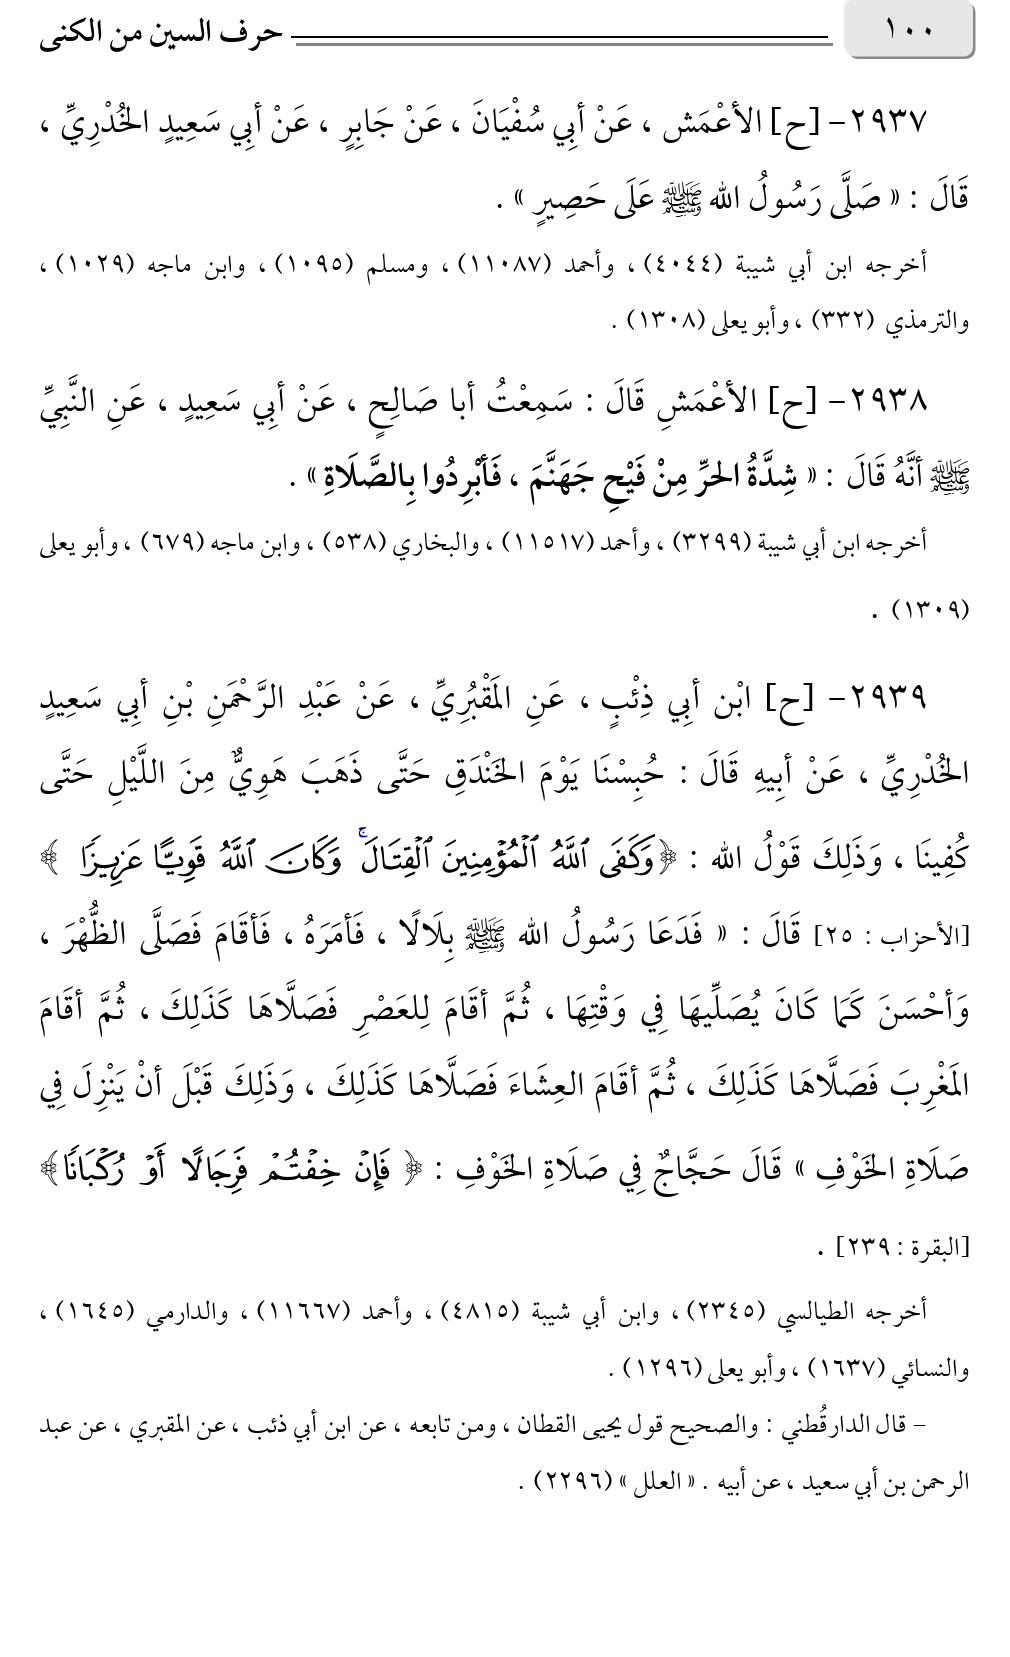 ١٠٠
حرف السين من الكنى
٢٩٣٧- [ح] الأعْمَش ، عَنْ أبِي سُفْيَانَ ، عَنْ جَابِرٍ ، عَنْ أبِي سَعِيدٍ الخُدْرِيِّ ،
قَالَ : « صَلَّى رَسُولُ الله ﷺ عَلَى حَصِيرٍ » .
أخرجه ابن أبي شيبة (٤٠٤٤) ، وأحمد (١١٠٨٧) ، ومسلم (١٠٩٥) ، وابن ماجه (١٠٢٩) ،
والترمذي (٣٣٢) ، وأبو يعلى (١٣٠٨) .
٢٩٣٨- [ح] الأعْمَشِ قَالَ : سَمِعْتُ أبا صَالِحٍ ، عَنْ أبِي سَعِيدٍ ، عَنِ النَّبِيِّ
ﷺ أنَّهُ قَالَ : « شِدَّةُ الحرِّ مِنْ فَيْحِ جَهَنَّمَ ، فَأبْرِدُوا بِالصَّلَاةِ » .
أخرجه ابن أبي شيبة (٣٢٩٩) ، وأحمد (١١٥١٧) ، والبخاري (٥٣٨) ، وابن ماجه (٦٧٩) ، وأبو يعلى
(١٣٠٩) .
٢٩٣٩- [ح] ابْن أبِي ذِئْبٍ ، عَنِ المَقْبُرِيِّ ، عَنْ عَبْدِ الرَّحْمَنِ بْنِ أبِي سَعِيدٍ
الخُدْرِيِّ ، عَنْ أبِيهِ قَالَ : حُبِسْنَا يَوْمَ الخَنْدَقِ حَتَّى ذَهَبَ هَوِيٌّ مِنَ اللَّيْلِ حَتَّى
كُفِينَا ، وَذَلِكَ قَوْلُ الله : ﴿وَكَفَى ٱللَّهُ ٱلْمُؤْمِنِينَ ٱلْقِتَالَ ۚ وَكَانَ ٱللَّهُ قَوِيًّا عَزِيزًا ﴾
[الأحزاب : ٢٥] قَالَ : « فَدَعَا رَسُولُ الله ﷺ بِلَالًا ، فَأمَرَهُ ، فَأقَامَ فَصَلَّى الظُّهْرَ ،
وَأحْسَنَ كَمَا كَانَ يُصَلِّيهَا فِي وَقْتِهَا ، ثُمَّ أقَامَ لِلعَصْرِ فَصَلَّاهَا كَذَلِكَ ، ثُمَّ أقَامَ
المَغْرِبَ فَصَلَّاهَا كَذَلِكَ ، ثُمَّ أقَامَ العِشَاءَ فَصَلَّاهَا كَذَلِكَ ، وَذَلِكَ قَبْلَ أنْ يَنْزِلَ فِي
صَلَاةِ الخَوْفِ » قَالَ حَجَّاجٌ فِي صَلَاةِ الخَوْفِ : ﴿ فَإِنْ خِفْتُمْ فَرِجَالًا أَوْ رُكْبَانًا﴾
[البقرة : ٢٣٩] .
أخرجه الطيالسي (٢٣٤٥) ، وابن أبي شيبة (٤٨١٥) ، وأحمد (١١٦٦٧) ، والدارمي (١٦٤٥) ،
والنسائي (١٦٣٧) ، وأبو يعلى (١٢٩٦) .
- قال الدارقُطني : والصحيح قول يحيى القطان ، ومن تابعه ، عن ابن أبي ذئب ، عن المقبري ، عن عبد
الرحمن بن أبي سعيد ، عن أبيه . « العلل » (٢٢٩٦) .